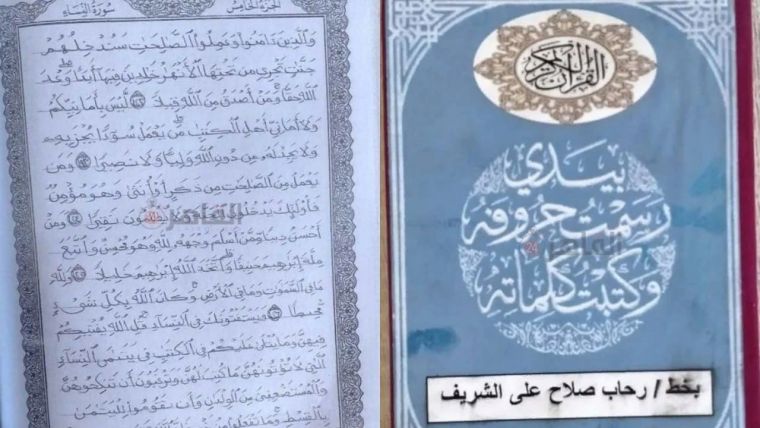 الجزء الخامس
سورة النساء
والذين ءامنوا وعملوا الصلحت سندخلهم
جنت تجري من تحتها الأنهر خلدين فيها أبدا وعد
الله حقا ومن أصدق من الله قيلا ليس بأمانيكم
ولا أماني أهل الكتب من يعمل سوءا يجز به
ولا يجد له من دون الله وليا ولا نصيرا ومن
يعمل من الصلحت من ذكر أو أنثى وهو مؤمن
فأولئك يظلمون نقيرا ومن
أحسن دينا ممن أسلم وجهه لله وهو محسن واتبع
ملة إبرهيم حنيفا واتخذ الله إبرهيم خليلا ولله
ما في السموت وما في الأرض وكان الله بكل شيء
محيطا ويستفتونك في النساء قل الله يفتيكم
فيهن وما يتلى عليكم في الكتب في يتمى النساء
التي لا تؤتونهن ما كتب لهن وترغبون أن تنكحوهن
والمستضعفين من الولدن وأن تقوموا لليتمى
بالقسط وما تفعلوا
القرآن الكريم
بيدي
رسمت حروفه
وكتبت كلماته
بخط / رحاب صلاح على الشريف
القاهرة 24